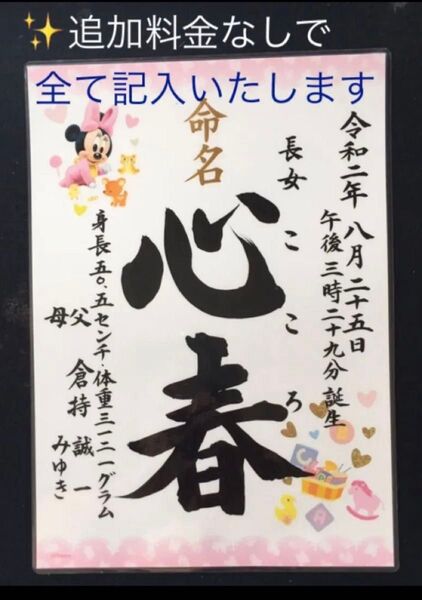 ✨追加料金なしで
全て記入いたします
命名
令和二年 八月二十五日
午後三時二十九分 誕生
長女 こころ
心春
身長五〇.五センチ・体重三一二一グラム
父 倉持 誠一
母 みゆき